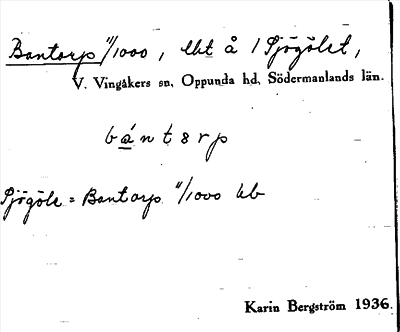 Bantorp 11/1000, lht å 1 Sjögölet,
V. Vingåkers sn, Oppunda hd, Södermanlands län.
bántorp
Sjögöle = Bantorp 11/1000 kb
Karin Bergström 1936.